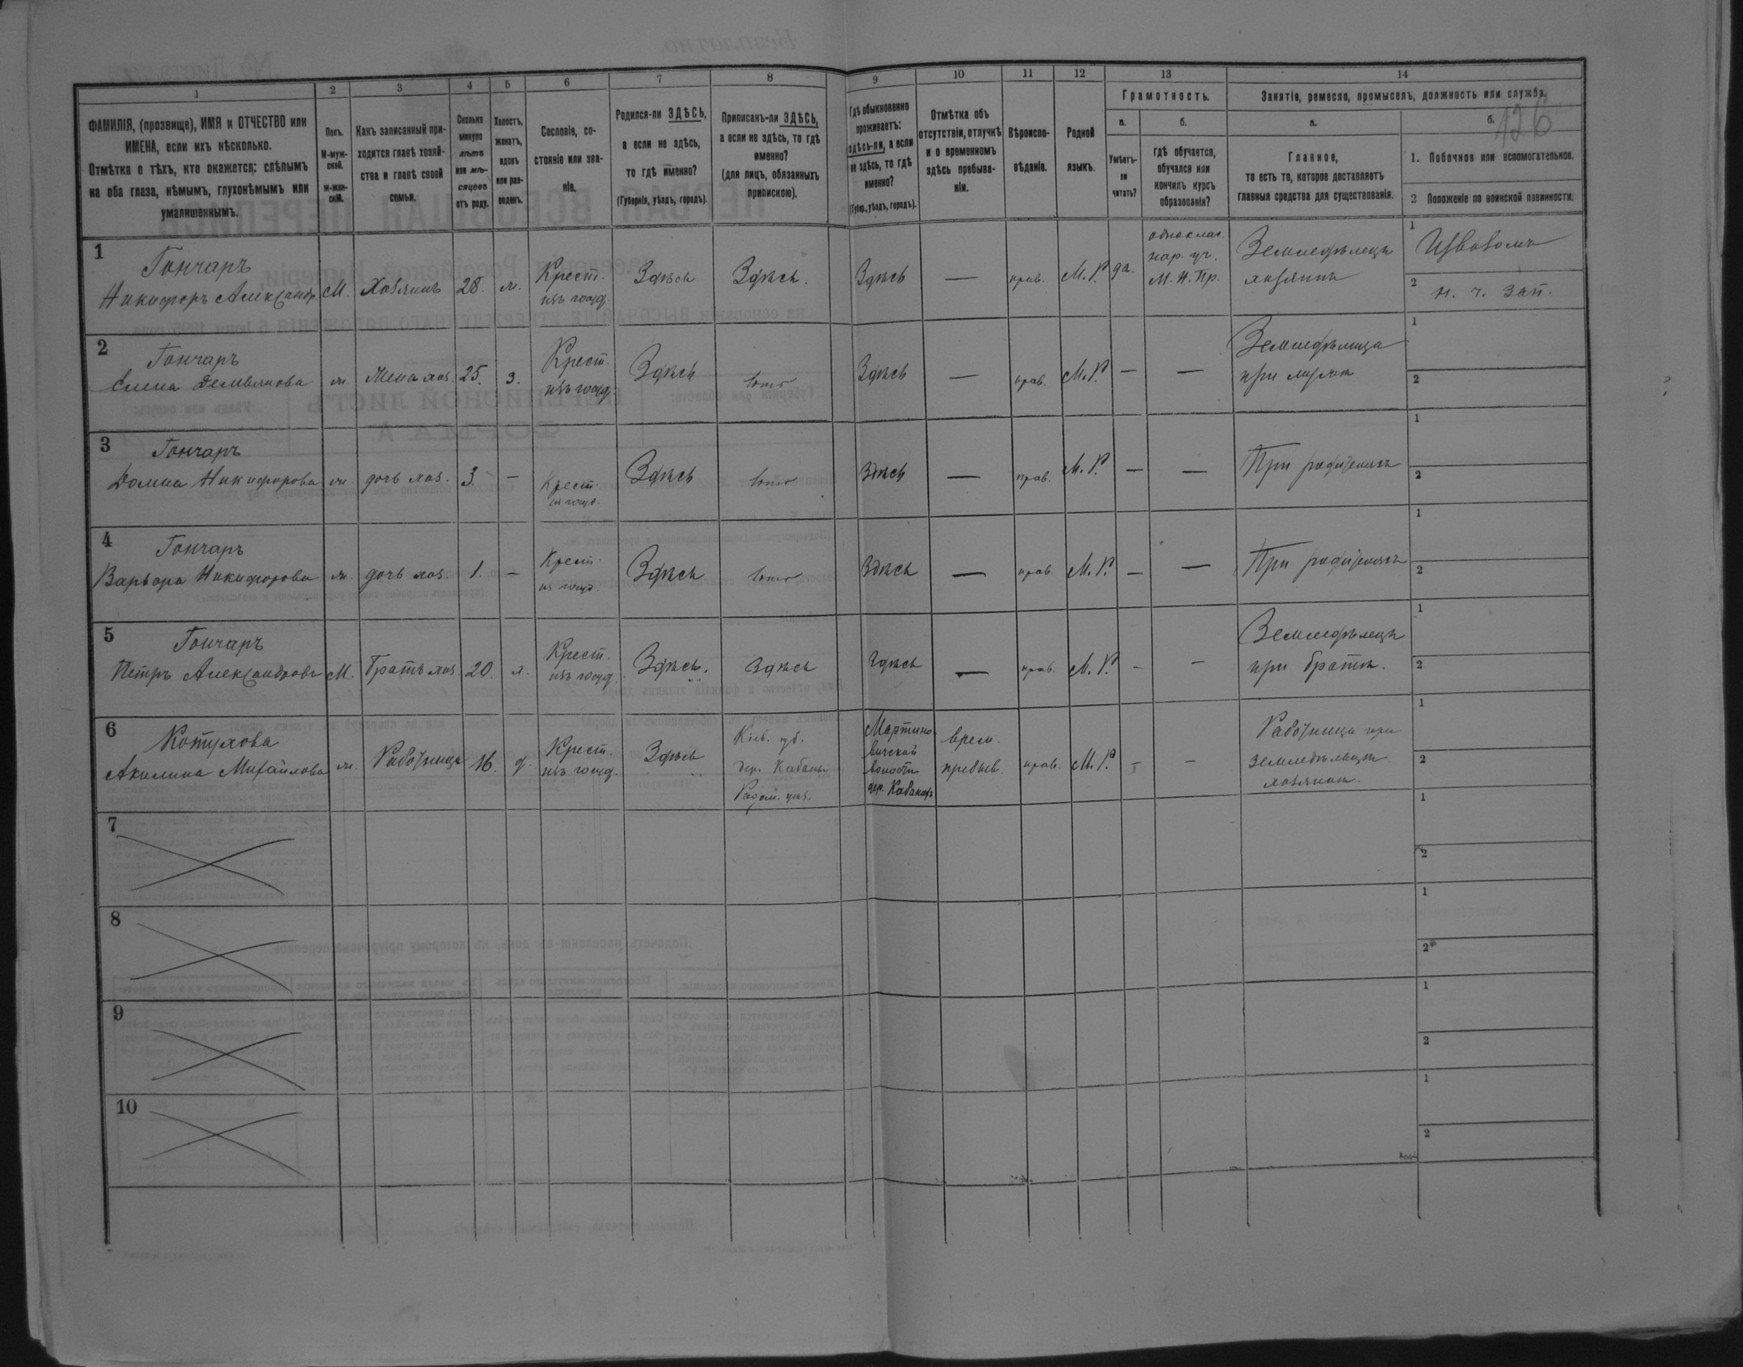 1
2
3
4
5
6
7
8
9
10
11
12
13
14
ФАМИЛІЯ, (прозвище), ИМЯ и ОТЧЕСТВО или
ИМЕНА, если ихъ нѣсколько.
Отмѣтка о тѣхъ, кто окажется: слѣпымъ
на оба глаза, нѣмымъ, глухонѣмымъ или
умалишеннымъ.
Полъ.
М-муж-
ской.
Ж-жен-
скій.
Какъ записанный при-
ходится главѣ хозяй-
ства и главѣ своей
семьи.
Сколько
минуло
лѣтъ
или мѣ-
сяцевъ
отъ роду.
Холостъ,
женатъ,
вдовъ
или раз-
веденъ.
Сословіе, со-
стояніе или зва-
ніе.
Родился-ли ЗДѢСЬ,
а если не здѣсь,
то гдѣ именно?
(Губернія, уѣздъ, городъ).
Приписанъ-ли ЗДѢСЬ,
а если не здѣсь, то гдѣ
именно?
(для лицъ, обязанныхъ
припискою).
Гдѣ обыкновенно
проживаетъ:
здѣсь-ли, а если
не здѣсь, то гдѣ
именно?
(Губер., уѣздъ, городъ).
Отмѣтка объ
отсутствіи, отлучкѣ
и о временномъ
здѣсь пребыва-
ніи.
Вѣроиспо-
вѣданіе.
Родной
языкъ.
Грамотность.
а.
Умѣетъ-
ли
читать?
б.
гдѣ обучается,
обучался или
кончилъ курсъ
образованія?
Занятіе, ремесло, промыселъ, должность или служба.
а.
Главное,
то есть то, которое доставляетъ
главныя средства для существованія.
б.
126
1. Побочное или вспомогательное.
2 Положеніе по воинской повинности.
1
Гончаръ
Никифоръ Александр.
М.
Хозяинъ
28.
ж.
Крест.
изъ госуд.
Здѣсь
Здѣсь.
Здѣсь
—
прав.
М. Р.
да.
одноклас.
нар. уч.
М. Н. Пр.
Земледѣлецъ
хозяинъ
1
Извозомъ
2
н. ч. зап.
2
Гончаръ
Елена Демьянова
ж.
Жена хоз.
25.
з.
Крест.
изъ госуд.
Здѣсь
тоже
Здѣсь
—
прав.
М. Р.
—
—
Земледѣлица
при мужѣ
1
2
3
Гончаръ
Домна Никифорова
ж.
дочь хоз.
3.
—
Крест.
из госуд.
Здѣсь
тоже
Здѣсь
—
прав.
М. Р.
—
—
При родителяхъ
1
2
4
Гончаръ
Варвара Никифорова
ж.
дочь хоз.
1.
—
Крест.
из госуд.
Здѣсь
тоже
Здѣсь
—
прав.
М. Р.
—
—
При родителяхъ
1
2
5
Гончаръ
Петръ Александровъ
М.
Братъ хоз.
20.
х.
Крест.
изъ госуд.
Здѣсь.
Здѣсь
Здѣсь
—
прав.
М. Р.
—
—
Земледѣлецъ
при братѣ.
1
2
6
Котухова
Акилина Михайлова
ж.
Работница
16.
д.
Крест.
изъ госуд.
Здѣсь
Кіев. губ.
дер. Кабаны
Радом. уѣз.
Мартино-
вичской
волости
дер. Кабанахъ
врем.
пребыв.
прав.
М. Р.
—
—
Работница при
земледѣльцѣ
хозяинѣ.
1
2
7
1
2
8
1
2
9
1
2
10
1
2